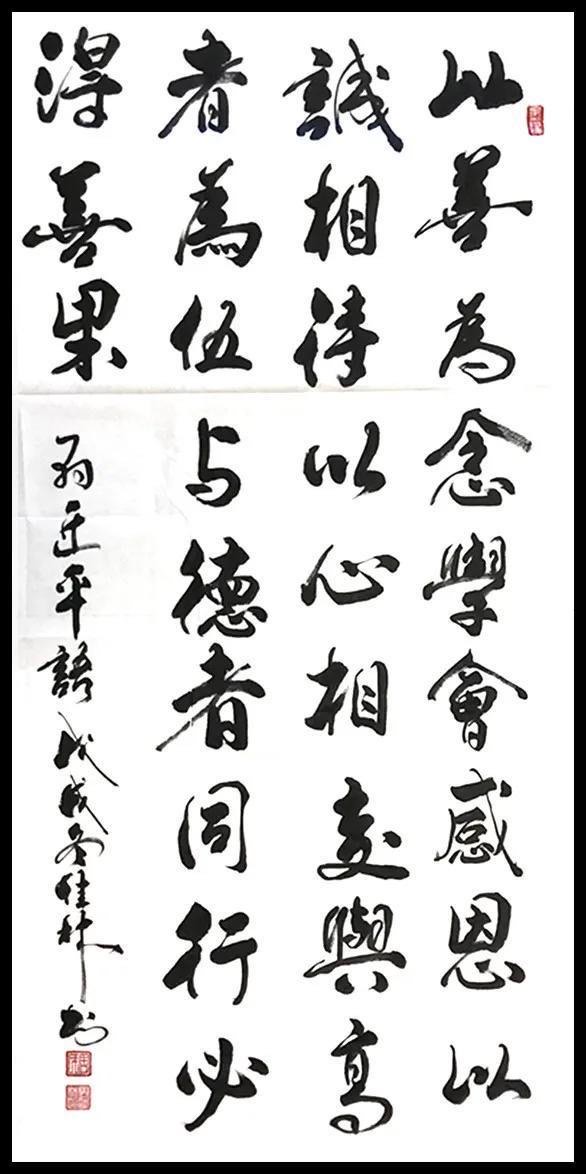 以善為念學會感恩以
誠相待以心相交與高
者為伍与德者同行必
得善果
平語戊戌冬佳林书